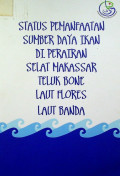 STATUS PEMANFAATAN
SUMBER DAYA IKAN
DI PERAIRAN
SELAT MAKASSAR
TELUK BONE
LAUT FLORES
LAUT BANDA